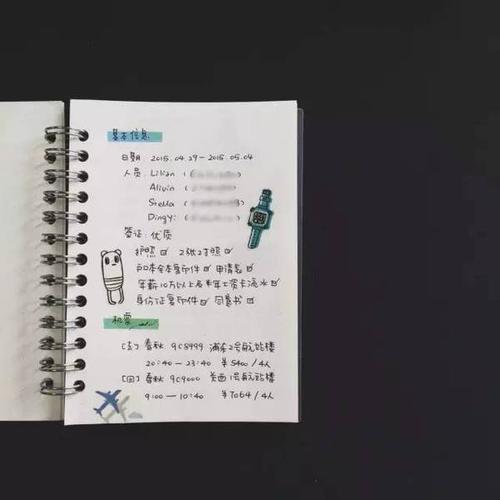 基本信息
日期 2015.04.29-2015.05.04
人员 Lilian ( )
Alivin ( )
Stella ( )
Dingyi ( )
签证: 优质
护照 2张2寸照
户口本全本复印件 申请表
年薪10万以上 半年工资卡流水
身份证复印件 同意书
机票
[去] 春秋 9C8999 浦东2号航站楼
20:40-23:40 ¥5400/4人
[回] 春秋 9C9000 关西1号航站楼
9:00-10:40 ¥7064/4人